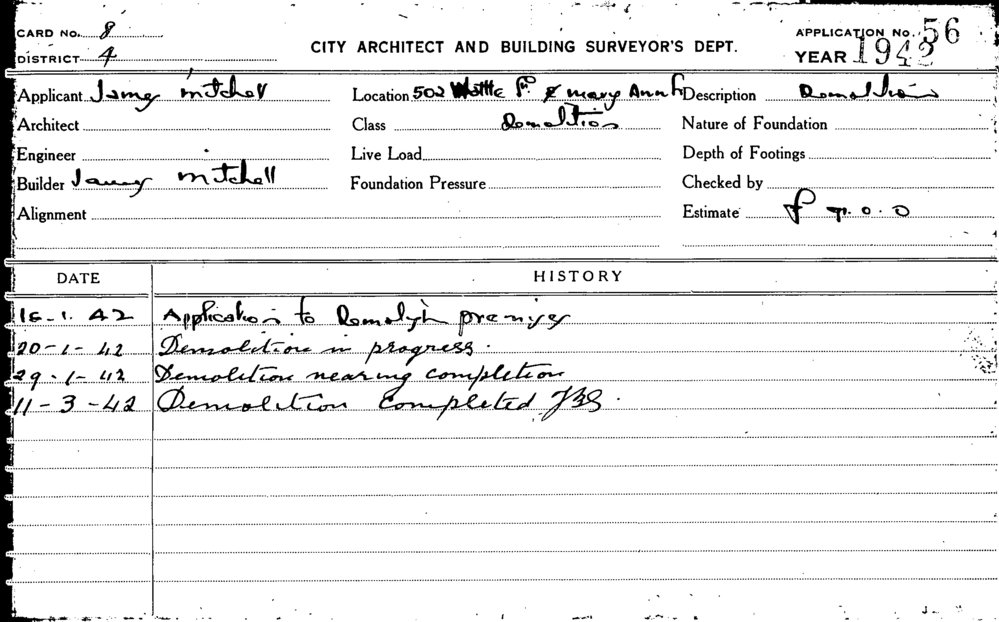 CARD No. 8
DISTRICT 4
CITY ARCHITECT AND BUILDING SURVEYOR'S DEPT.
APPLICATION No. 56
YEAR 1942
Applicant James Mitchell Location 502 Wattle St & Mary Ann St Description Demolition
Architect Class Demolition Nature of Foundation
Engineer Live Load Depth of Footings
Builder James Mitchell Foundation Pressure Checked by
Alignment Estimate £
DATE HISTORY
-1. 42 Application to Demolish premises
20-1-42 Demolition in progress.
29-1-42 Demolition nearing completion
11-3-42 Demolition Completed